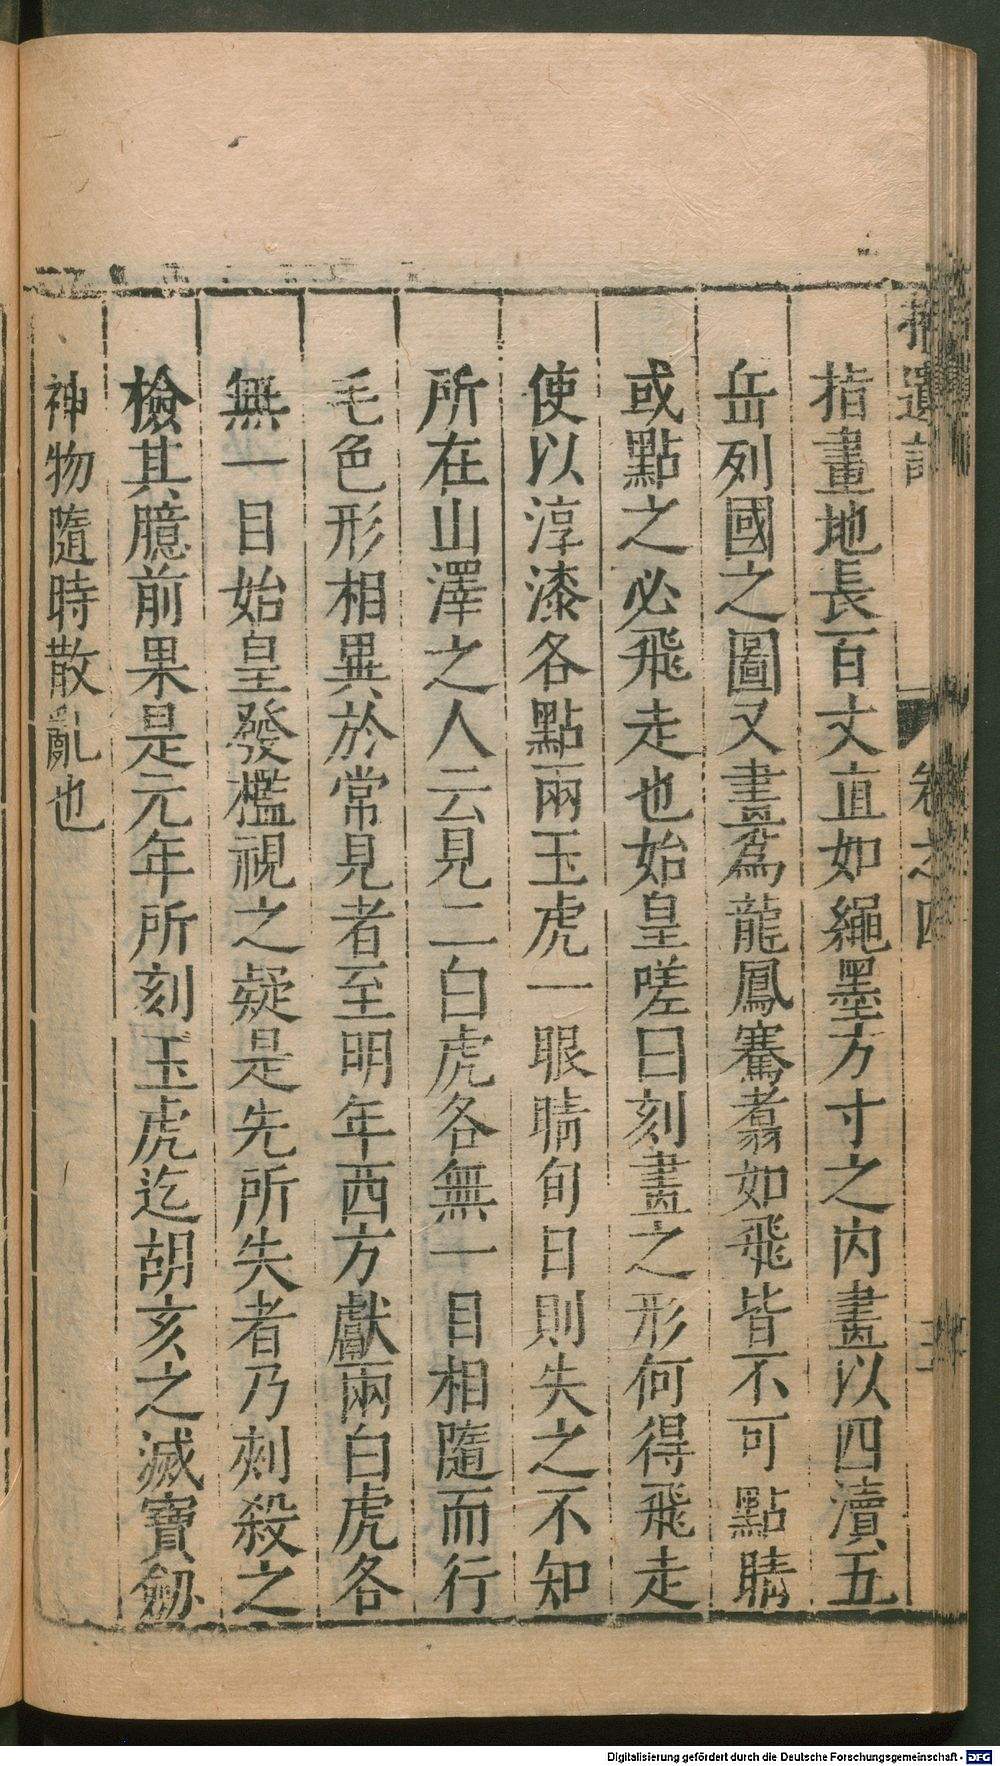 指畫地長百丈直如繩墨方寸之內畫以四瀆五
岳列國之圖又畫爲龍鳳騫翥如飛皆不可點睛
或點之必飛走也始皇嗟曰刻畫之形何得飛走
使以淳漆各點兩玉虎一眼睛旬日則失之不知
所在山澤之人云見二白虎各無一目相隨而行
毛色形相異於常見者至明年西方獻兩白虎各
無一目始皇發檻視之疑是先所失者乃刺殺之
檢其臆前果是元年所刻玉虎迄胡亥之滅寶劒
神物隨時散亂也
Digitalisierung gefördert durch die Deutsche Forschungsgemeinschaft - DFG